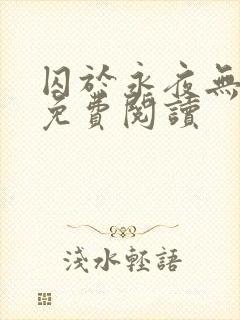 囚於永夜無
免費閱讀
淺水輕語